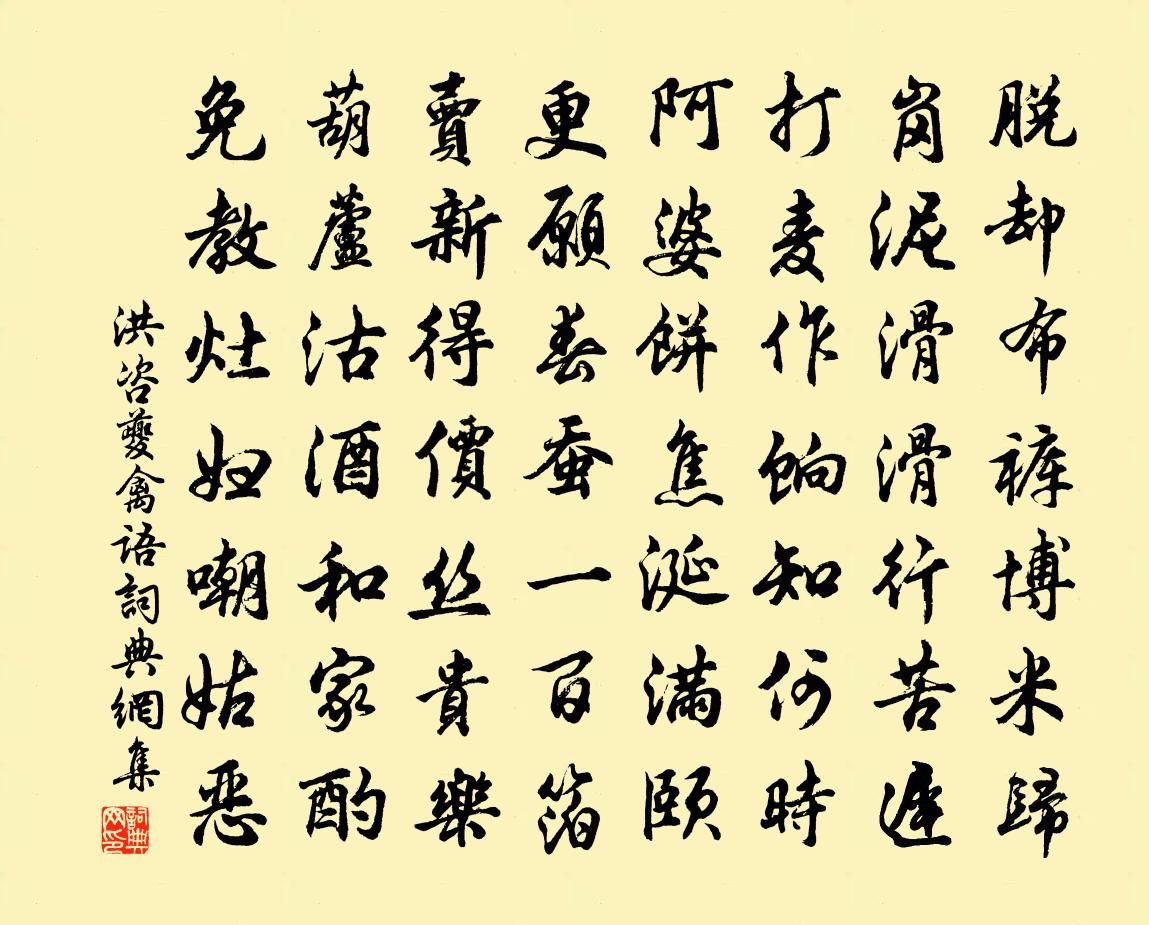 脱却布裤博米歸
崗泥滑滑行苦遲
打麦作餉知何時
阿婆餅焦涎满頤
更願春蚕一百箔
賣新得價丝貴樂
葫蘆沽酒和家酌
免教灶妇嘲姑惡
洪咨夔禽語詞典網集
詞典網印